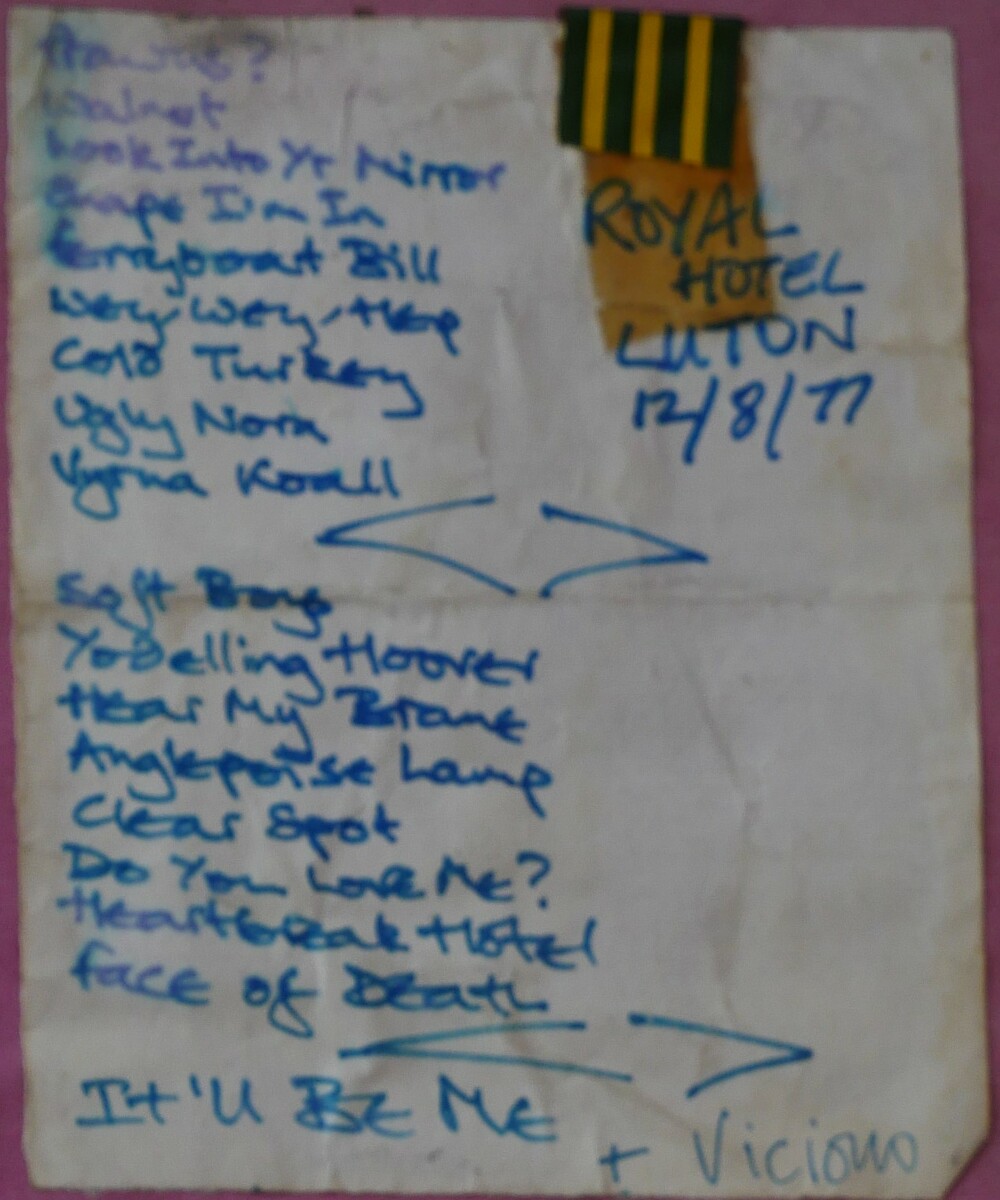 Prawns?
Walnut
Look Into Yr Mirror
Shape I'm In
Ferryboat Bill
Wey-Wey-Hep
Cold Turkey
Ugly Nora
Vyrna Knall
Soft Boys
Yodelling Hoover
Hear My Brane
Anglepoise Lamp
Clear Spot
Do You Love Me?
Heartbreak Hotel
Face of Death
It'll Be Me
+ Vicious
ROYAL
HOTEL
LUTON
12/8/77